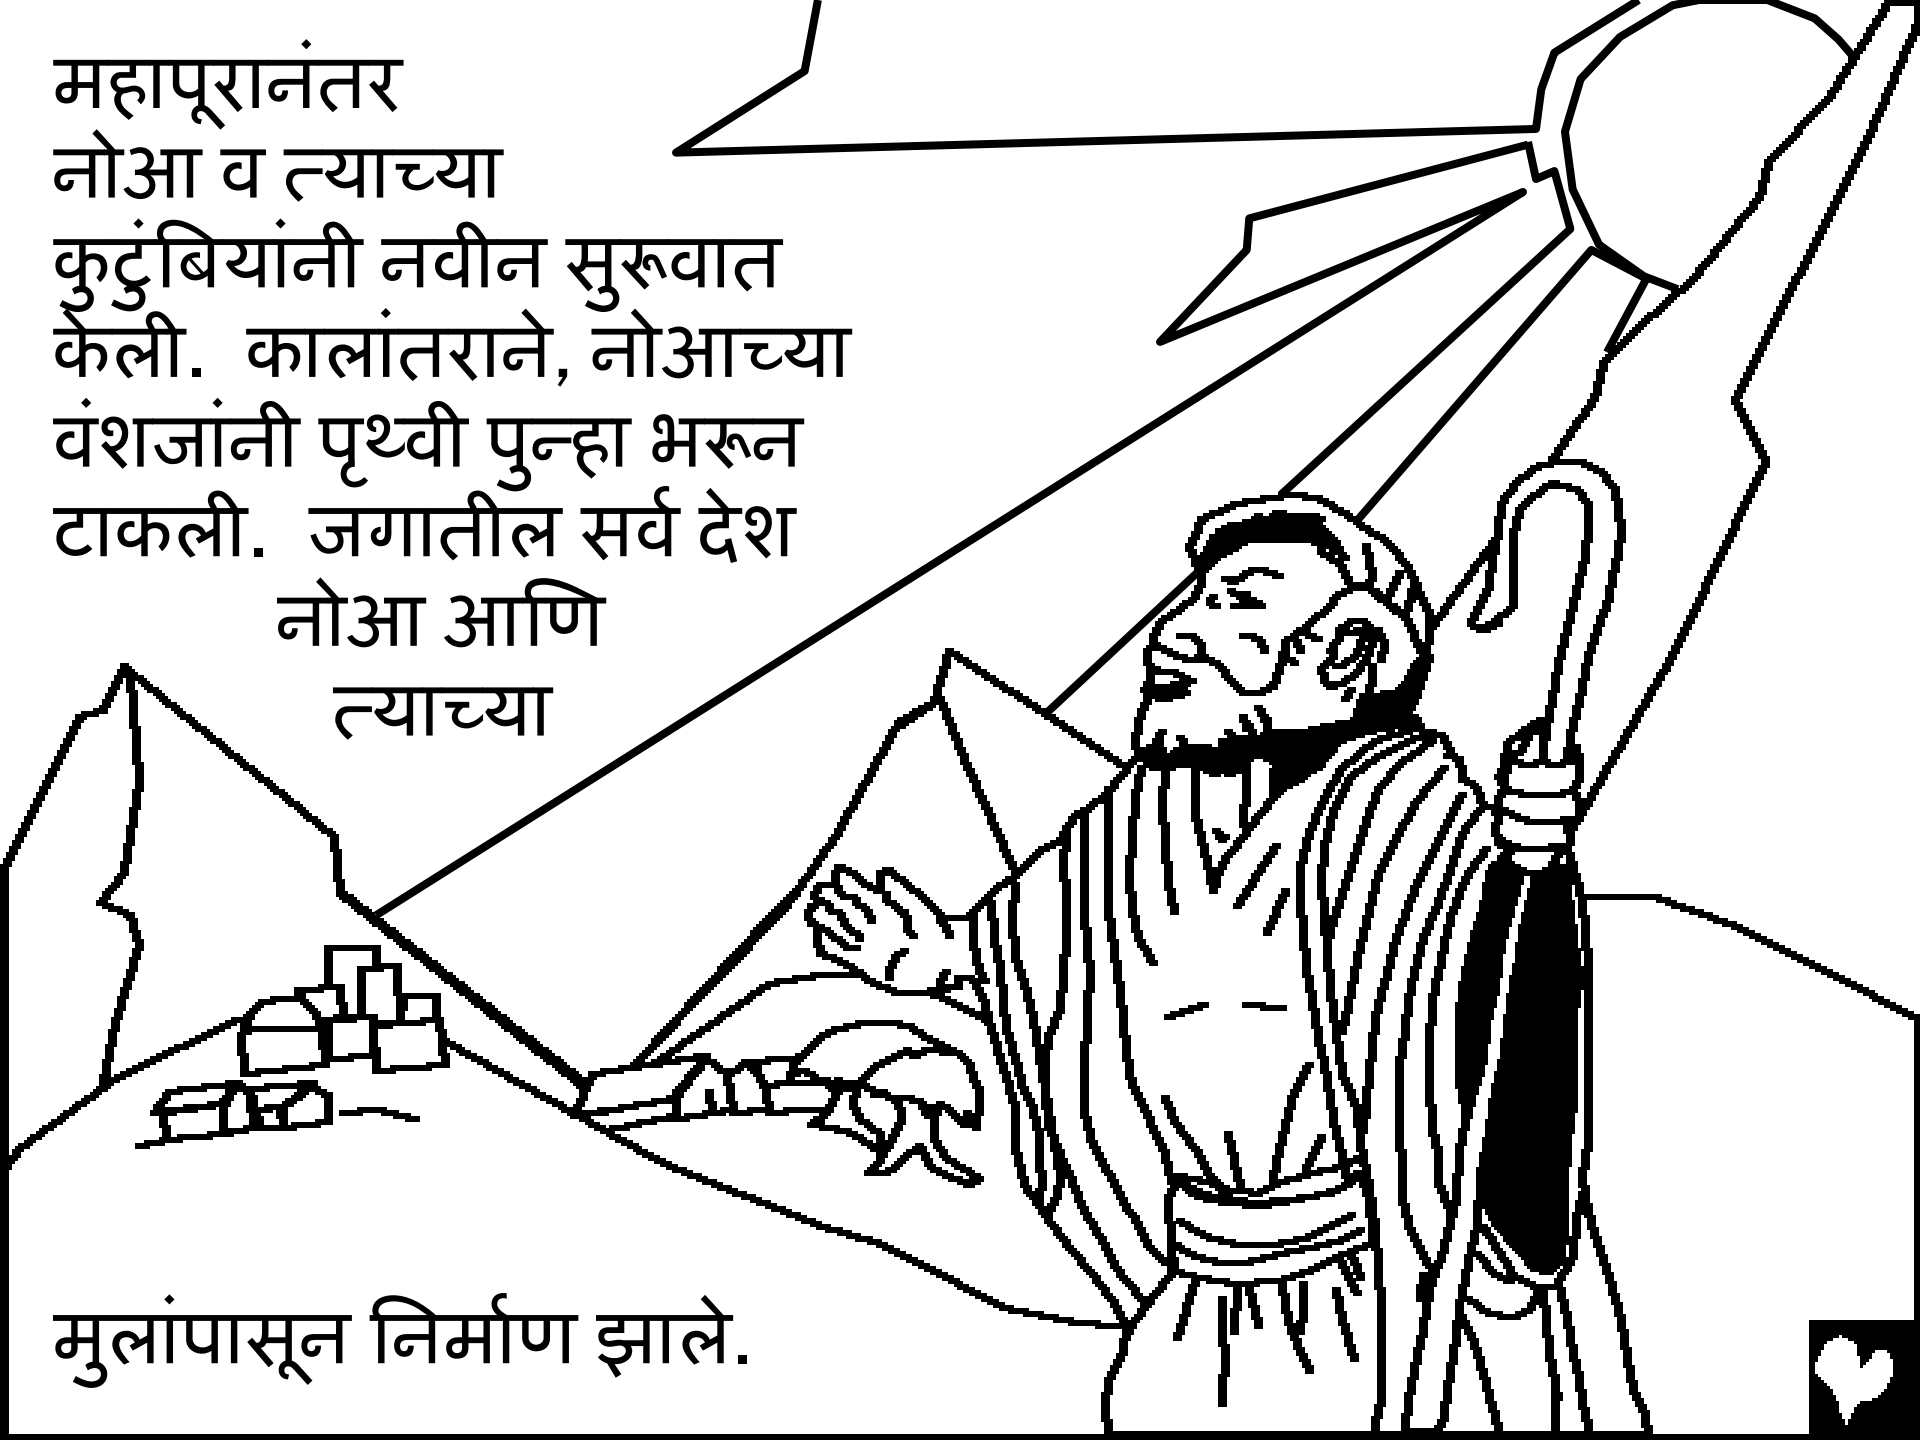 महापूरानंतर
नोआ व त्याच्या
कुटुंबियांनी नवीन सुरूवात
केली.  कालांतराने, नोआच्या
वंशजांनी पृथ्वी पुन्हा भरून
टाकली.  जगातील सर्व देश
नोआ आणि
त्याच्या
मुलांपासून निर्माण झाले.